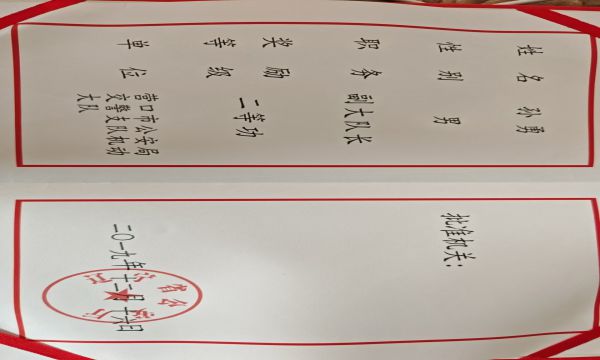 姓名 孙勇
性别 男
职务 副大队长
奖励
等级 二等功
单位 营口市公安局
交警支队机动
大队
批准机关:
二〇一九年十二月十六日